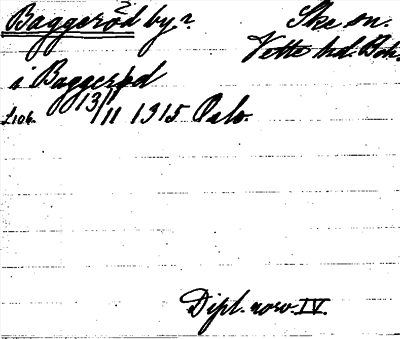 Baggeröd by?. Ske sn.
Vette hd. Boh.
i Baggerød
Lior. 13/11 1915 Oslo.
Dipl. norv. IV.